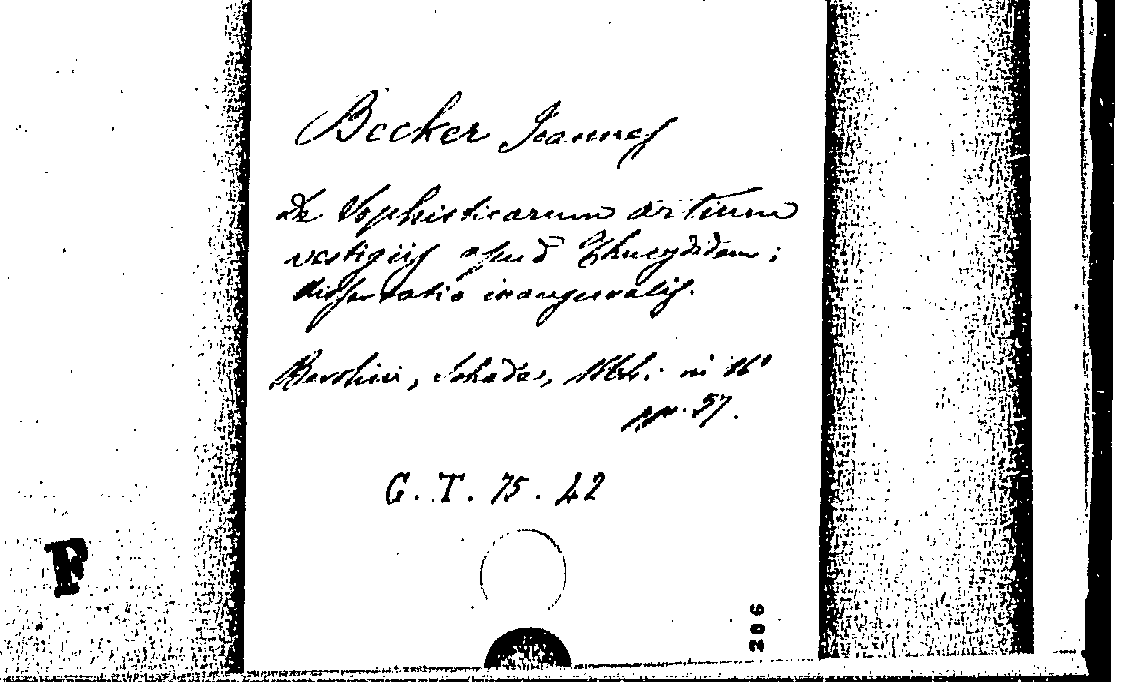 Becker Joannes
De Sophisticarum artium
vestigiis apud Thucydidem;
dissertatio inauguralis.
Berolini, Schade, in
pp. 57.
G. T. 75. 42
F
206